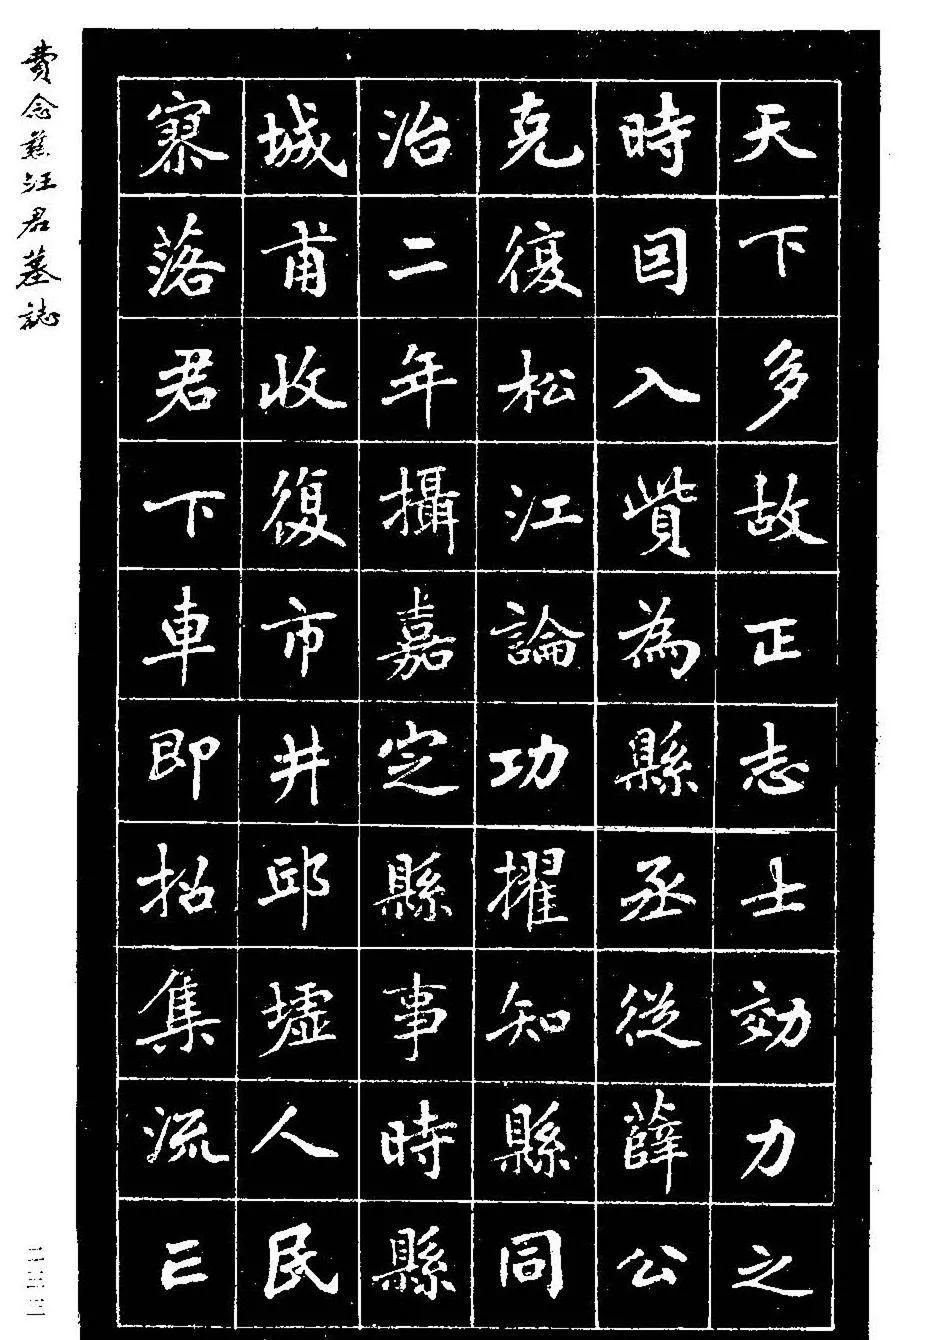 天下多故正志士効力之
時因入貲為縣丞從薛公
克復松江論功擢知縣同
治二年攝嘉定縣事時縣
城甫收復市井邱墟人民
寥落君下車即招集流亡
費念慈汪君墓誌
二三三